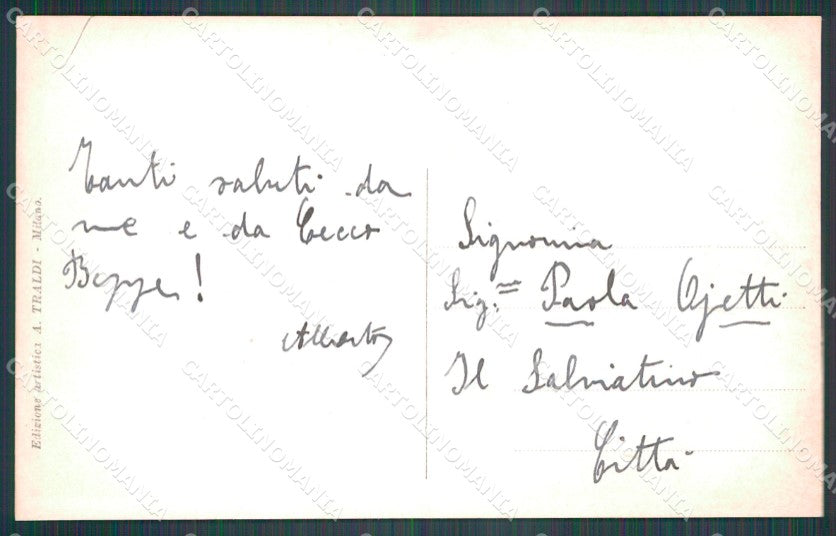 Tanti saluti da
me e da Cecco
Beppe!
Alberto
Signorina
Sig.na Paola Ojetti
Il Salviatino
Città
Edizione artistica A. TRALDI - Milano.
CARTOLINOMANIA